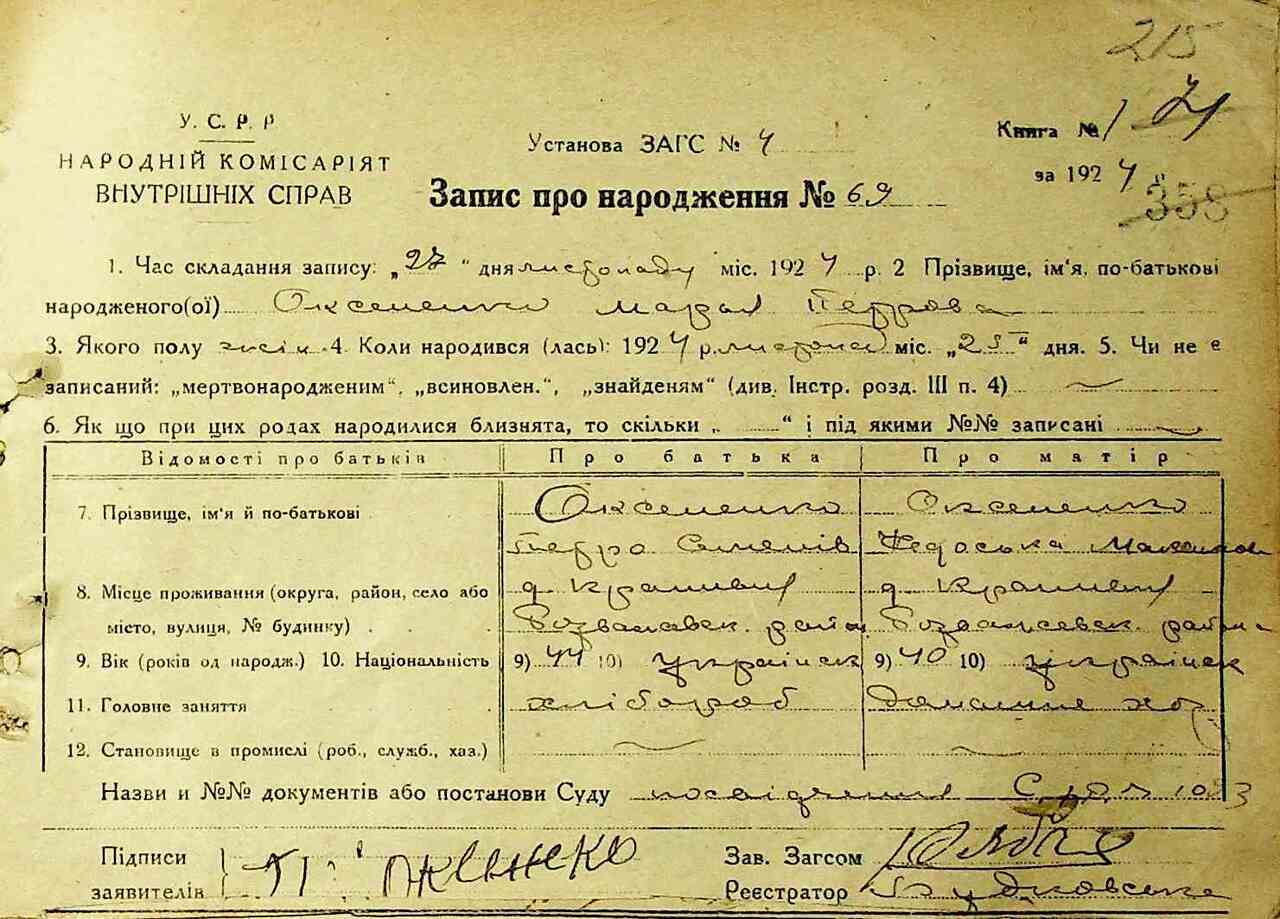 215
У. С. Р. Р
НАРОДНІЙ КОМІСАРІЯТ
ВНУТРІШНІХ СПРАВ
Установа ЗАГС № 4
Книга № 1
за 1924
358
Запис про народження № 69
1. Час складання запису: „27" дня листопаду міс. 1924 р. 2 Прізвище, ім'я, по-батькові
народженого(ої) Оксененко Марія Петрова
3. Якого полу жісін 4. Коли народився (лась): 1924 р. листопад міс. „25" дня. 5. Чи не є
записаний: „мертвонародженим", „всиновлен.", „знайденям" (див. Інстр. розд. III п. 4)
6. Як що при цих родах народилися близнята, то скільки „ " і під якими №№ записані
Відомості про батьків Про батька Про матір
7. Прізвище, ім'я й по-батькові Оксененко Оксененко
Петро Семенів Федоська Максимов
8. Місце проживання (округа, район, село або д. Крапивня д. Крапивня
місто, вулиця, № будинку) . . . район Розважевск. района
9. Вік (років од народж.) 10. Національність 9) 44 10) українск 9) 40 10) українск
11. Головне заняття хлібороб домашнє хоз
12. Становище в промислі (роб., служб., хаз.)
Назви и №№ документів або постанови Суду посвідчення 1023
Підписи П Оксененко Зав. Загсом
заявителів Реєстратор